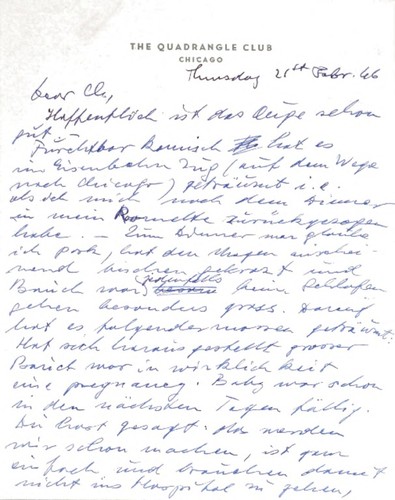 THE QUADRANGLE CLUB
CHICAGO
Thursday 21st Febr. 46
Dear
Hoffentlich ist das Auge schon
gut.
Furchtbar komisch hat es
im Eisenbahn Zug (auf dem Wege
nach Chicago) geträumt i.e.
als ich mich nach dem Dinner
in mein Roomette zurückgezogen
habe. — Zum Dinner war glaube
ich Pork, hat den Magen anschei-
nend bischen gekrazt und
Bauch war jedenfalls beim Schlafen
gehen besonders gross. Darauf
hat es folgendermassen geträumt.
Hat sich heraus gestellt grosser
Bauch war in wirklichkeit
eine pregnancy. Baby war schon
in den nächsten Tagen fällig.
Du hast gesagt: das werden
wir schon machen, ist ganz
einfach und brauchen damit
nicht ins Hospital zu gehen,